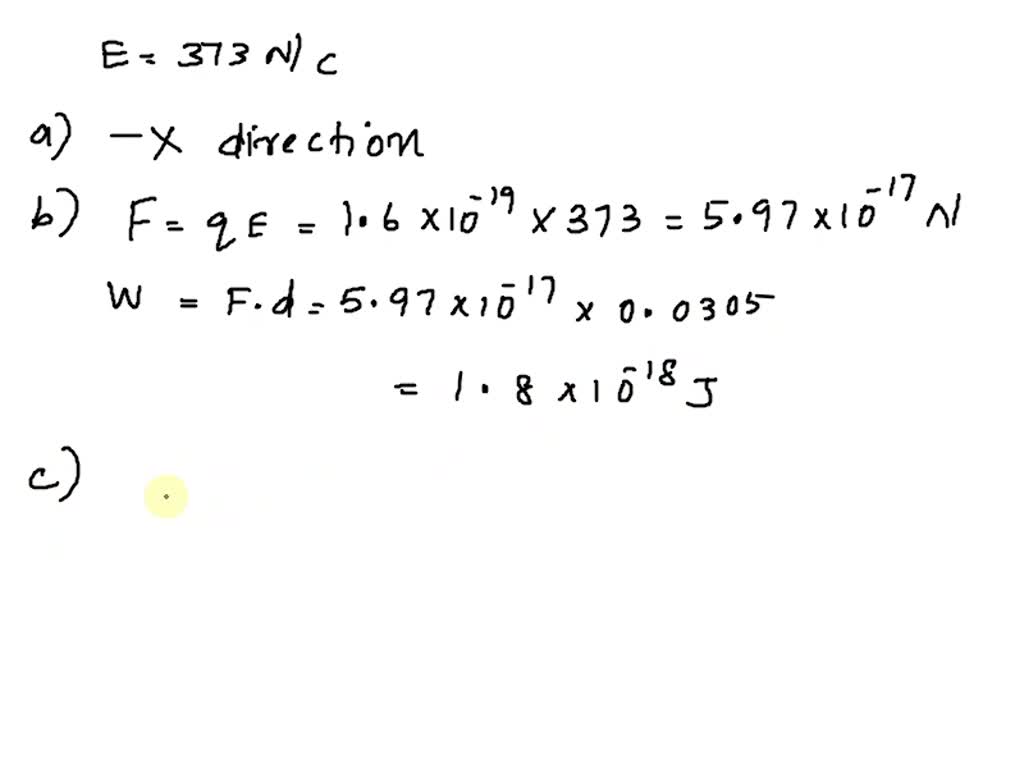 E = 373 N/C
a) -X direction
b) F = qE = 1.6 × 10⁻¹⁹ × 373 = 5.97 × 10⁻¹⁷ N
W = F.d = 5.97 × 10⁻¹⁷ × 0.0305
= 1.8 × 10⁻¹⁸ J
c)